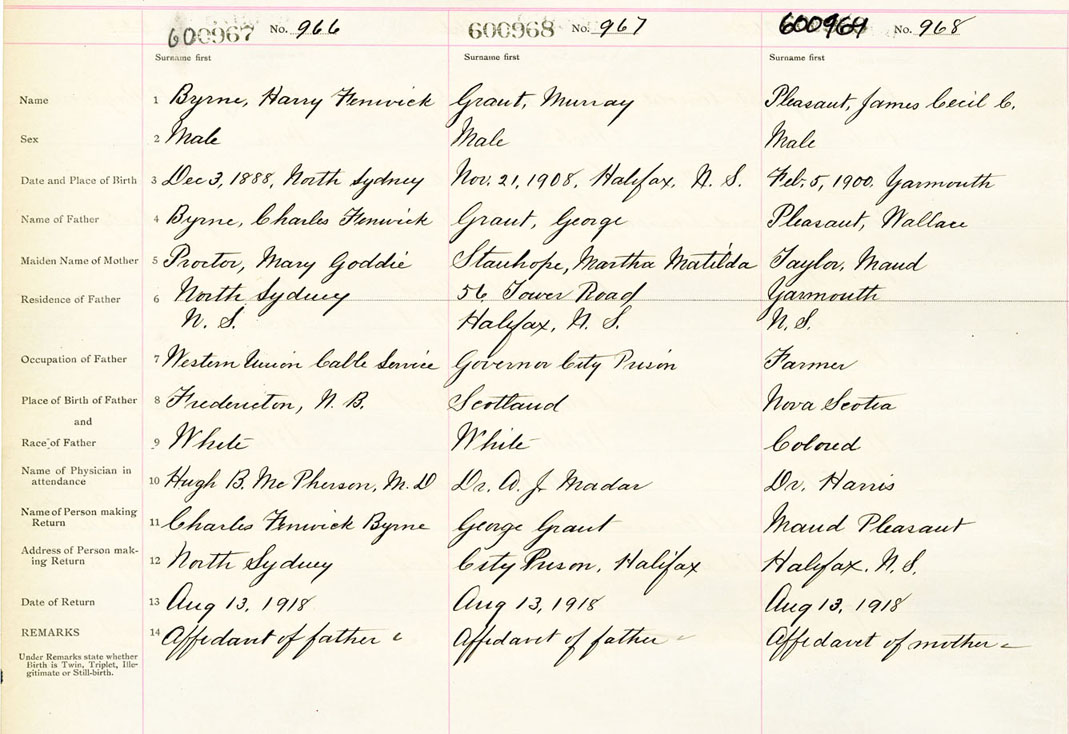 600967 No. 966 600968 No. 967 600969 No. 968
Surname first Surname first Surname first
Name 1 Byrne, Harry Fenwick Grant, Murray Pleasant, James Cecil C.
Sex 2 Male Male Male
Date and Place of Birth 3 Dec 3, 1888, North Sydney Nov. 21, 1908, Halifax, N. S. Feb. 5, 1900, Yarmouth
Name of Father 4 Byrne, Charles Fenwick Grant, George Pleasant, Wallace
Maiden Name of Mother 5 Proctor, Mary Goddie Stanhope, Martha Matilda Taylor, Maud
Residence of Father 6 North Sydney 56 Tower Road Yarmouth
N. S. Halifax, N. S. N. S.
Occupation of Father 7 Western Union Cable Service Governor City Prison Farmer
Place of Birth of Father 8 Fredericton, N. B. Scotland Nova Scotia
and
Race of Father 9 White White Colored
Name of Physician in
attendance 10 Hugh B. McPherson, M. D Dr. A. J. Madar Dr. Harris
Name of Person making
Return 11 Charles Fenwick Byrne George Grant Maud Pleasant
Address of Person mak-
ing Return 12 North Sydney City Prison, Halifax Halifax, N. S.
Date of Return 13 Aug 13, 1918 Aug 13, 1918 Aug 13, 1918
REMARKS 14 Affidavit of father Affidavit of father Affidavit of mother
Under Remarks state whether
Birth is Twin, Triplet, Ille-
gitimate or Still-birth.